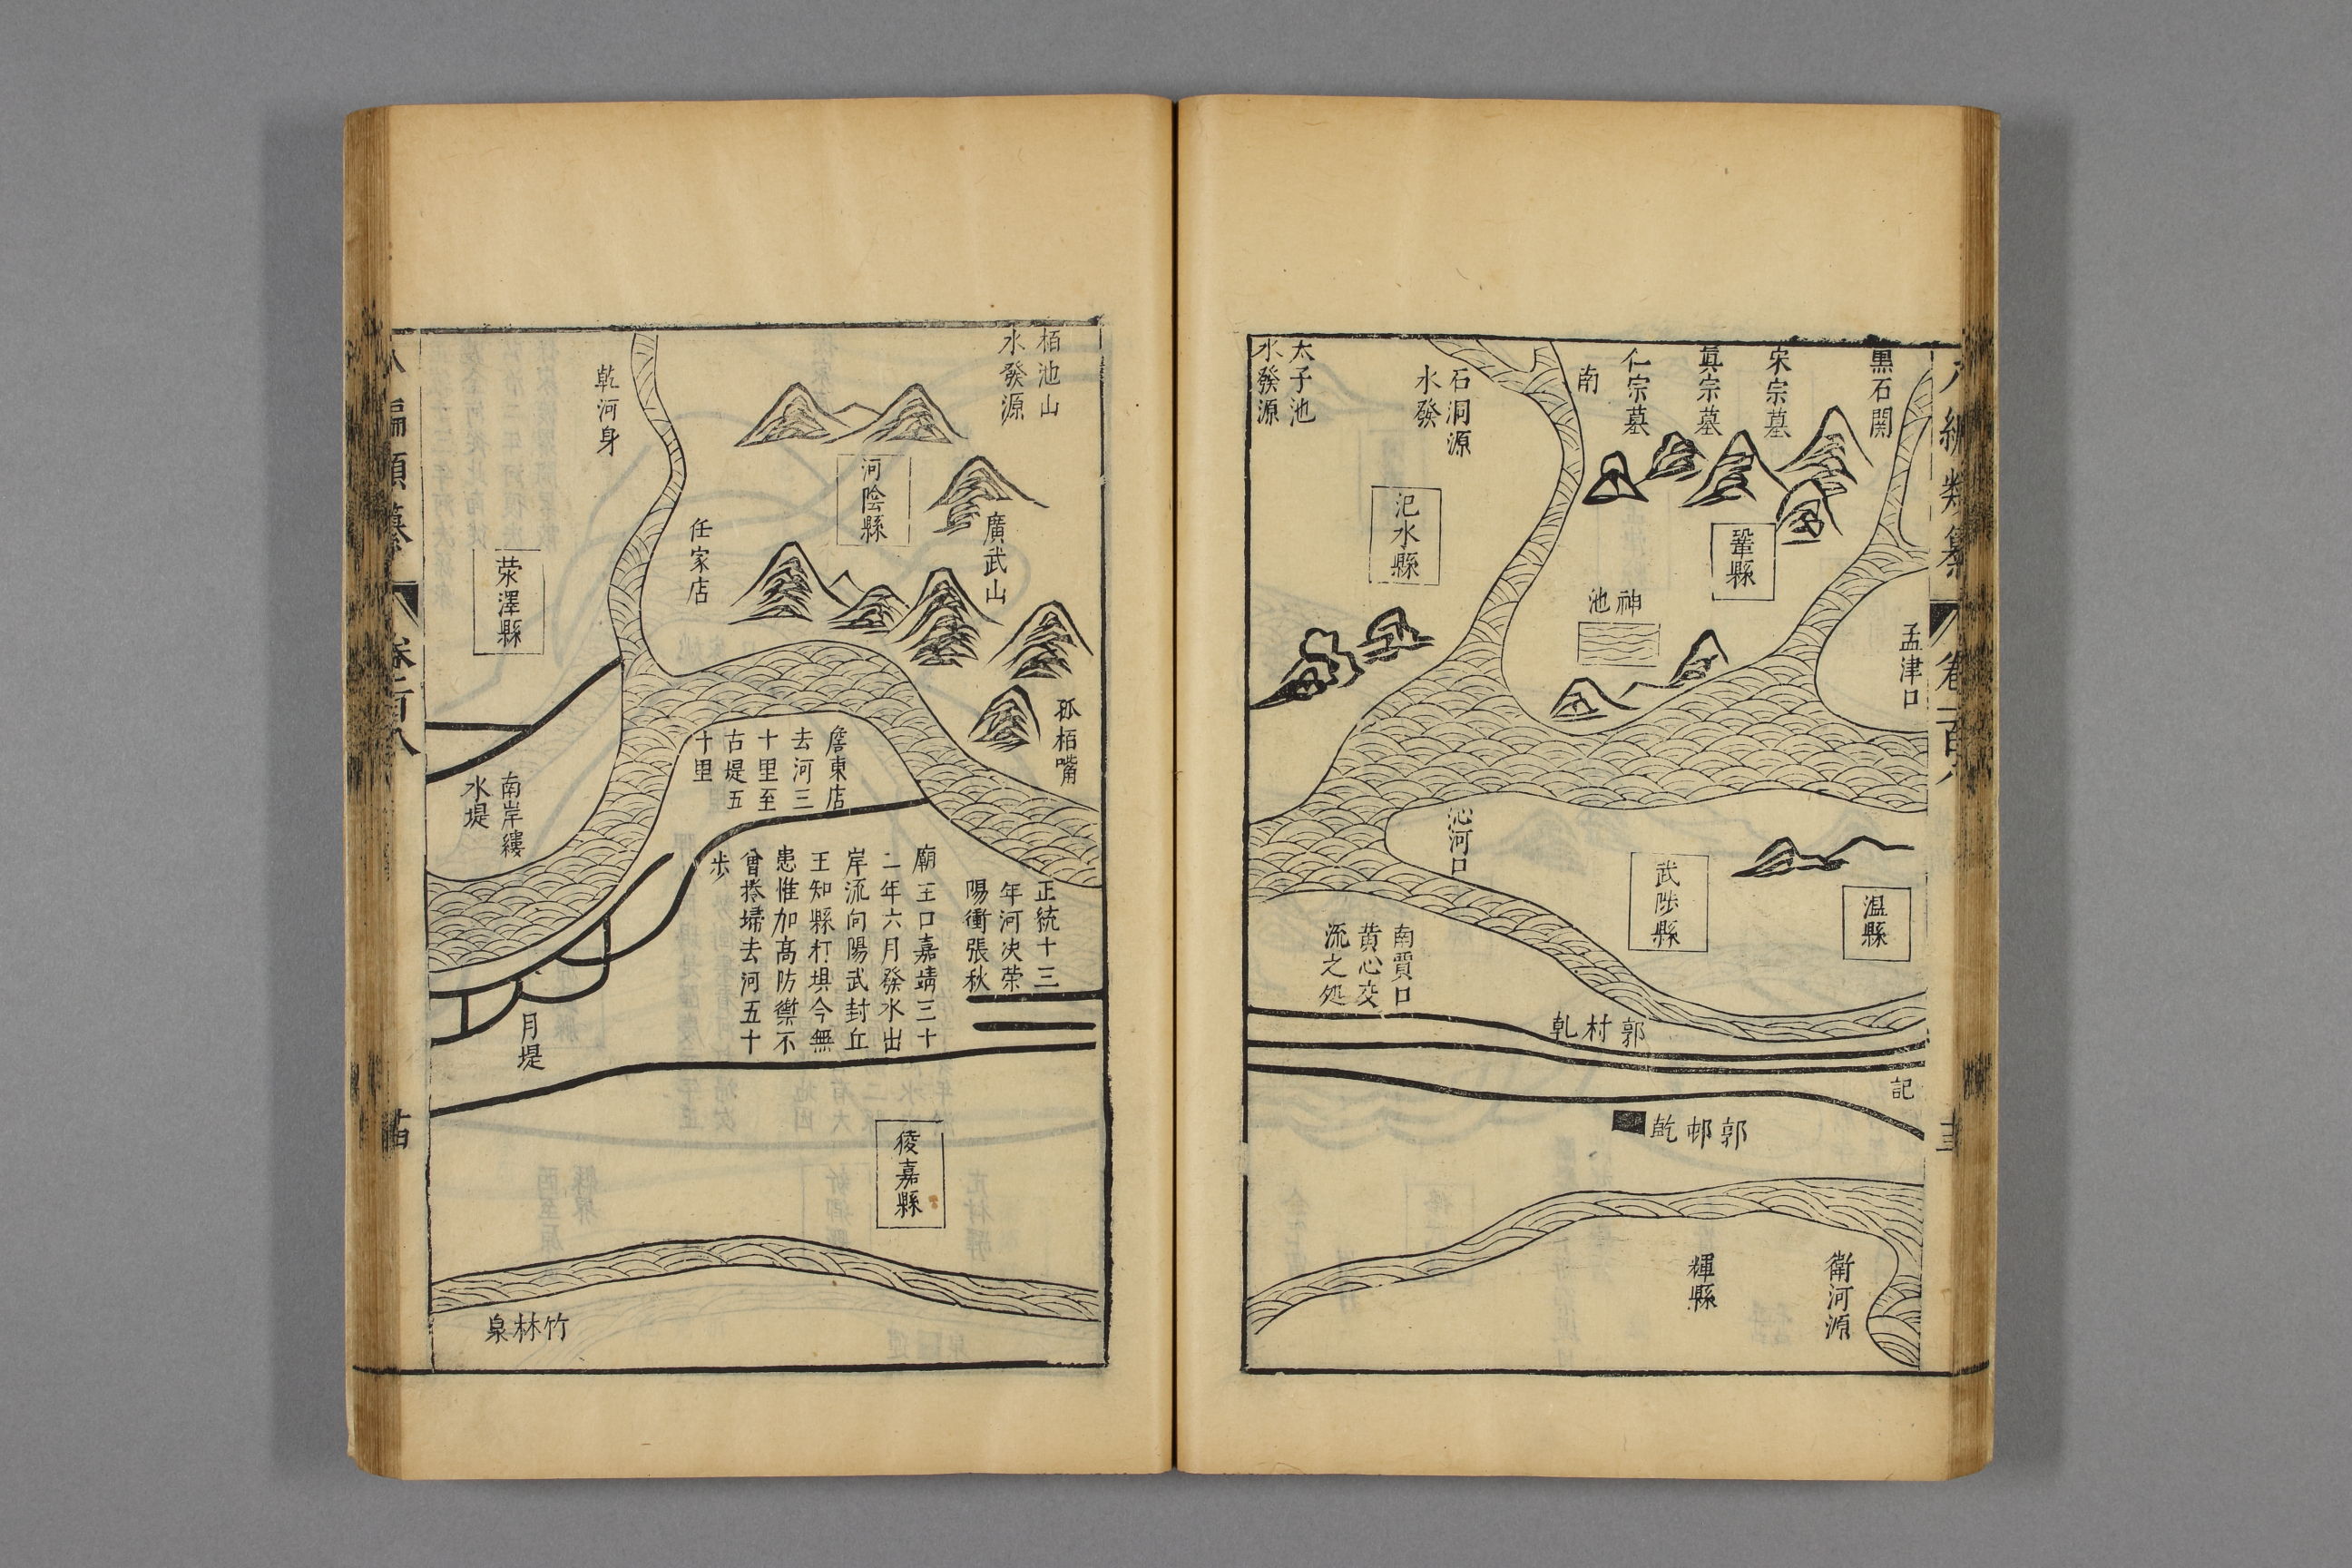 八編類纂
卷一百八
黒石関
宋宗墓
真宗墓
仁宗墓
南
石洞源
水發
太子池
水發源
孟津口
鞏縣
神池
汜水縣
沁河口
武陟縣
温縣
南賈口
黄心交
流之処
郭村乹
記
郭邨乾
輝縣
衛河源
栢池山
水發源
乾河身
河陰縣
廣武山
任家店
荥澤縣
孤栢嘴
詹東店
去河三
十里至
古堤五
十里
南岸縷
水堤
正統十三
年河决荣
陽衝張秋
廟王口嘉靖三十
二年六月發水出
岸流向陽武封丘
王知縣打埧今無
患惟加高防禦不
曾捲埽去河五十
步
月堤
徒嘉縣
竹林泉
八編類纂
卷一百八